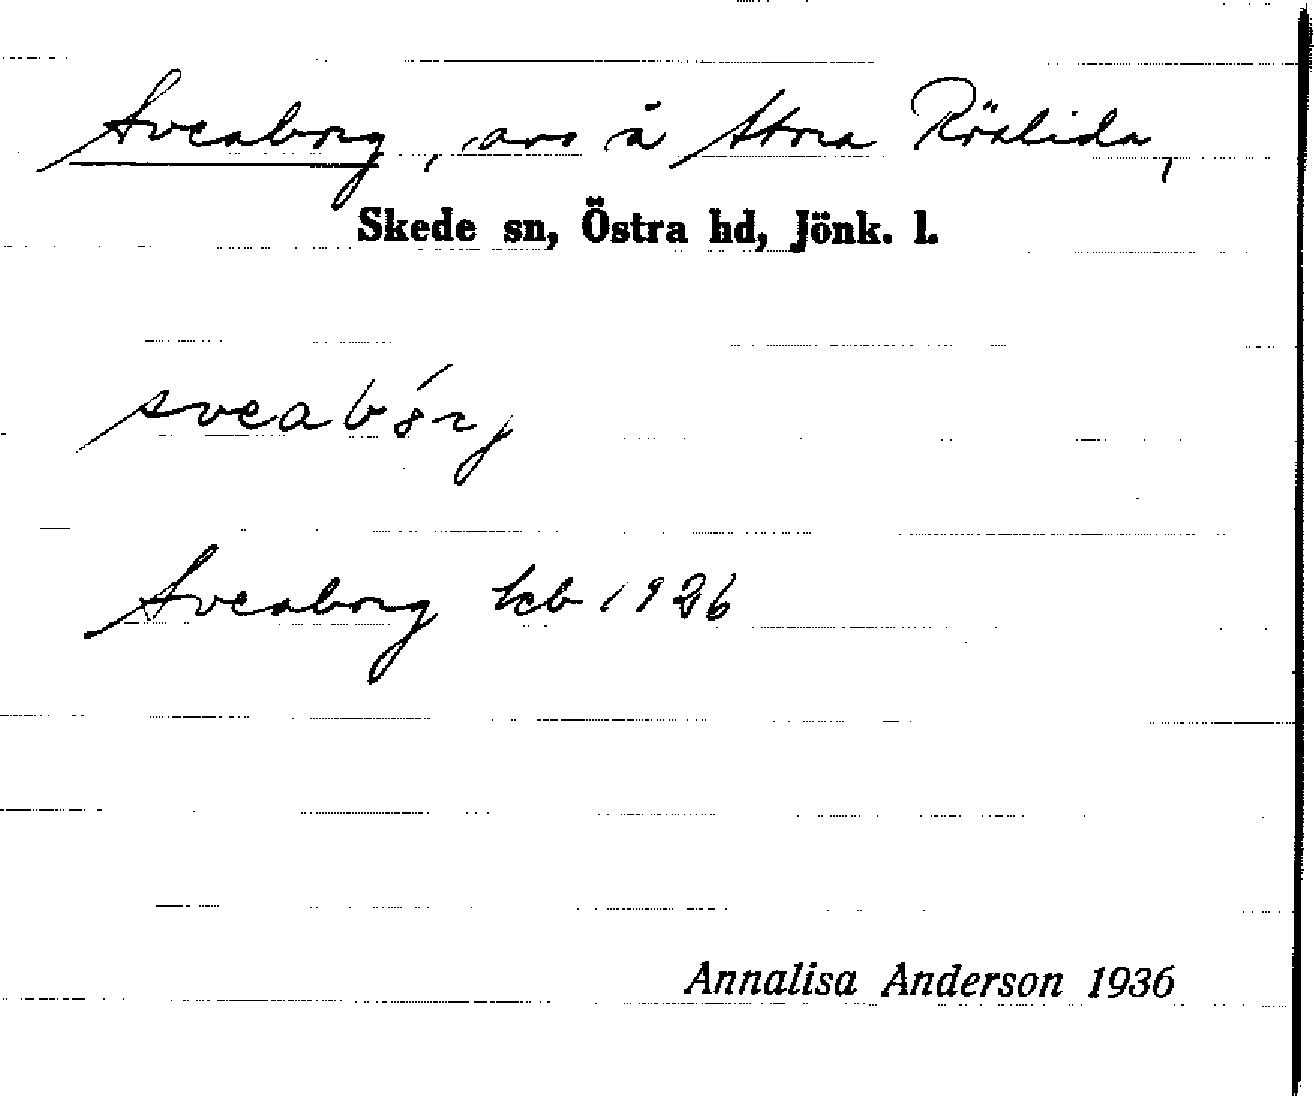 Sveaborg, avs å Stora Röslida,
Skede sn, Östra hd, Jönk. l.
sveabórg
Sveaborg kb 1926
Annalisa Anderson 1936